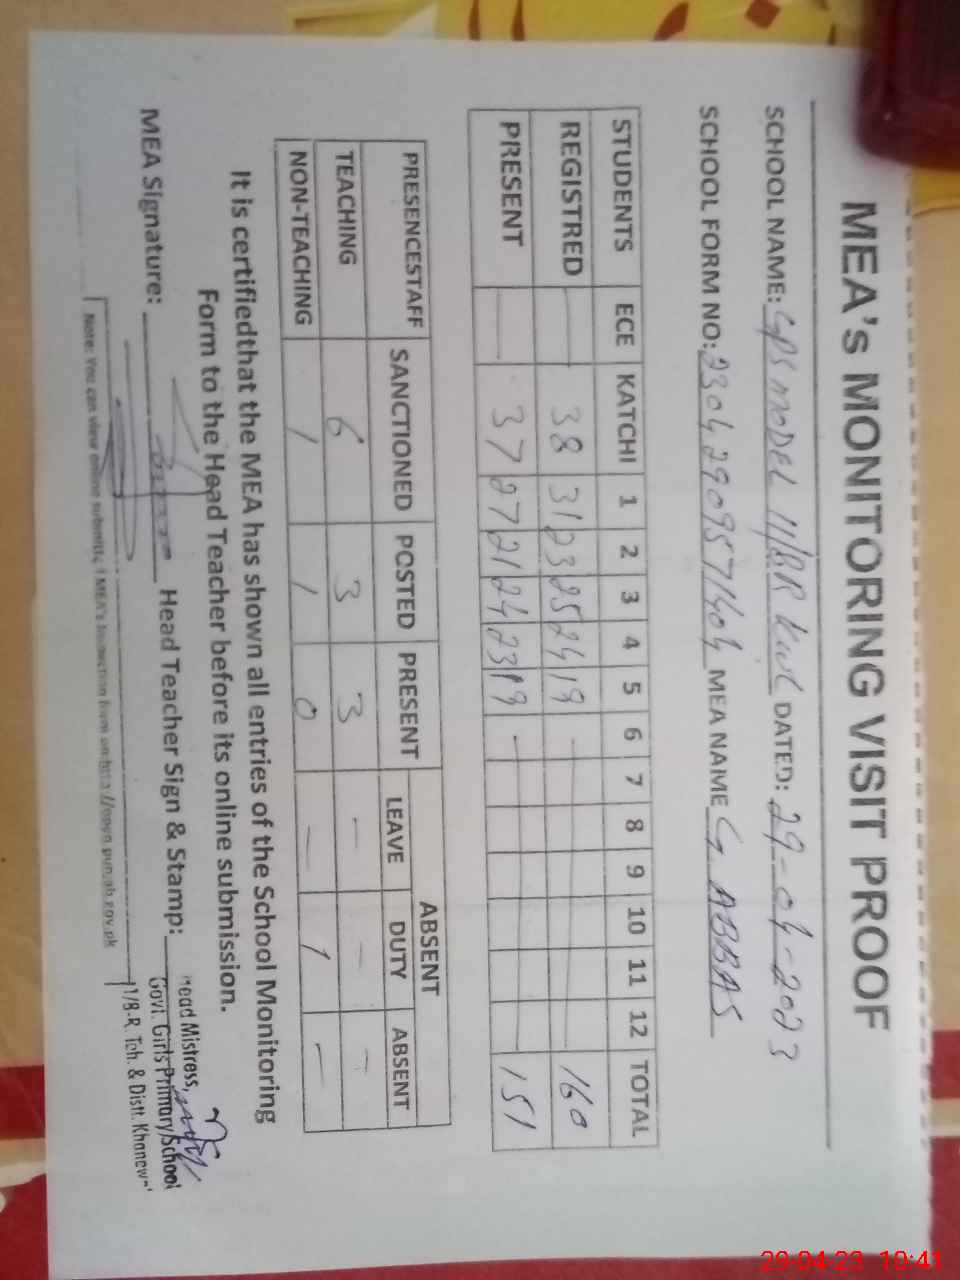 MEA's MONITORING VISIT PROOF
SCHOOL NAME: GPS MODEL 11/8R KWL DATED: 29-04-2023
SCHOOL FORM NO: 23042909571404 MEA NAME G. ABBAS
STUDENTS ECE KATCHI 1 2 3 4 5 6 7 8 9 10 11 12 TOTAL
REGISTRED — 38 31 23 25 24 19 — 160
PRESENT — 37 27 21 24 23 19 — 151
PRESENCESTAFF SANCTIONED POSTED PRESENT ABSENT
LEAVE DUTY ABSENT
TEACHING 6 3 3 — — —
NON-TEACHING 1 1 0 — 1 —
It is certifiedthat the MEA has shown all entries of the School Monitoring
Form to the Head Teacher before its online submission.
MEA Signature: Head Teacher Sign & Stamp:
Head Mistress,
Govt. Girls Primary School
11/8-R. Teh. & Distt. Khanewal
Note: You can view online submitted MEA's Inspection form on http://open.punjab.gov.pk
29-04-23 10:41